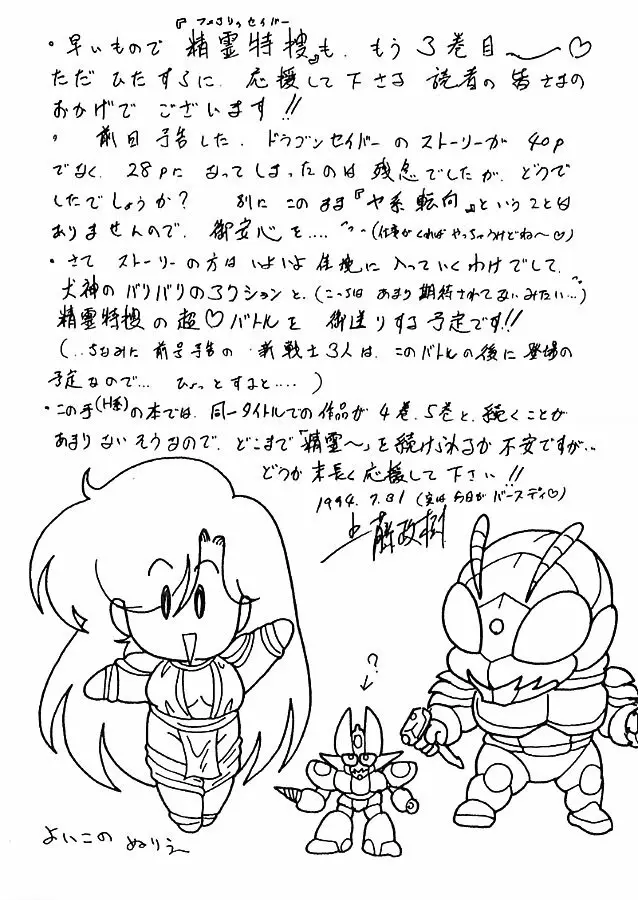 『フェアリィセイバー
・早いもので 精霊特捜』も、もう 3巻目〜〜♡
ただ ひたすらに、応援して下さる 読者の皆さまの
おかげで ございます!!
・ 前回 予告した、ドラゴンセイバーのストーリーが 40P
でなく、28Pに なってしまったのは 残念でしたが、どうで
したでしょうか? 別に このまま『ヤ系転向』ということは
ありませんので、御安心を……(仕事がくれば やっちゃうけどね〜♡)
・さて ストーリーの方は いよいよ 佳境に 入っていくわけでして、
犬神のバリバリのアクションと、(こっちは あまり 期待されてないみたい…)
精霊特捜の超♡バトルを 御送りする予定です!!
(…ちなみに 前号予告の 新戦士3人は、このバトルの後に登場の
予定なので… ひょっとすると…… )
・この手(H系)の本では、同一タイトルでの作品が 4巻、5巻と、続くことが
あまり ないそうなので、どこまで「精霊〜」を続けられるか 不安ですが…
どうか 末長く 応援して 下さい!!
1994.7.31 (実は 今日が バースディ♡)
上藤政樹
?
よいこの ぬりえ